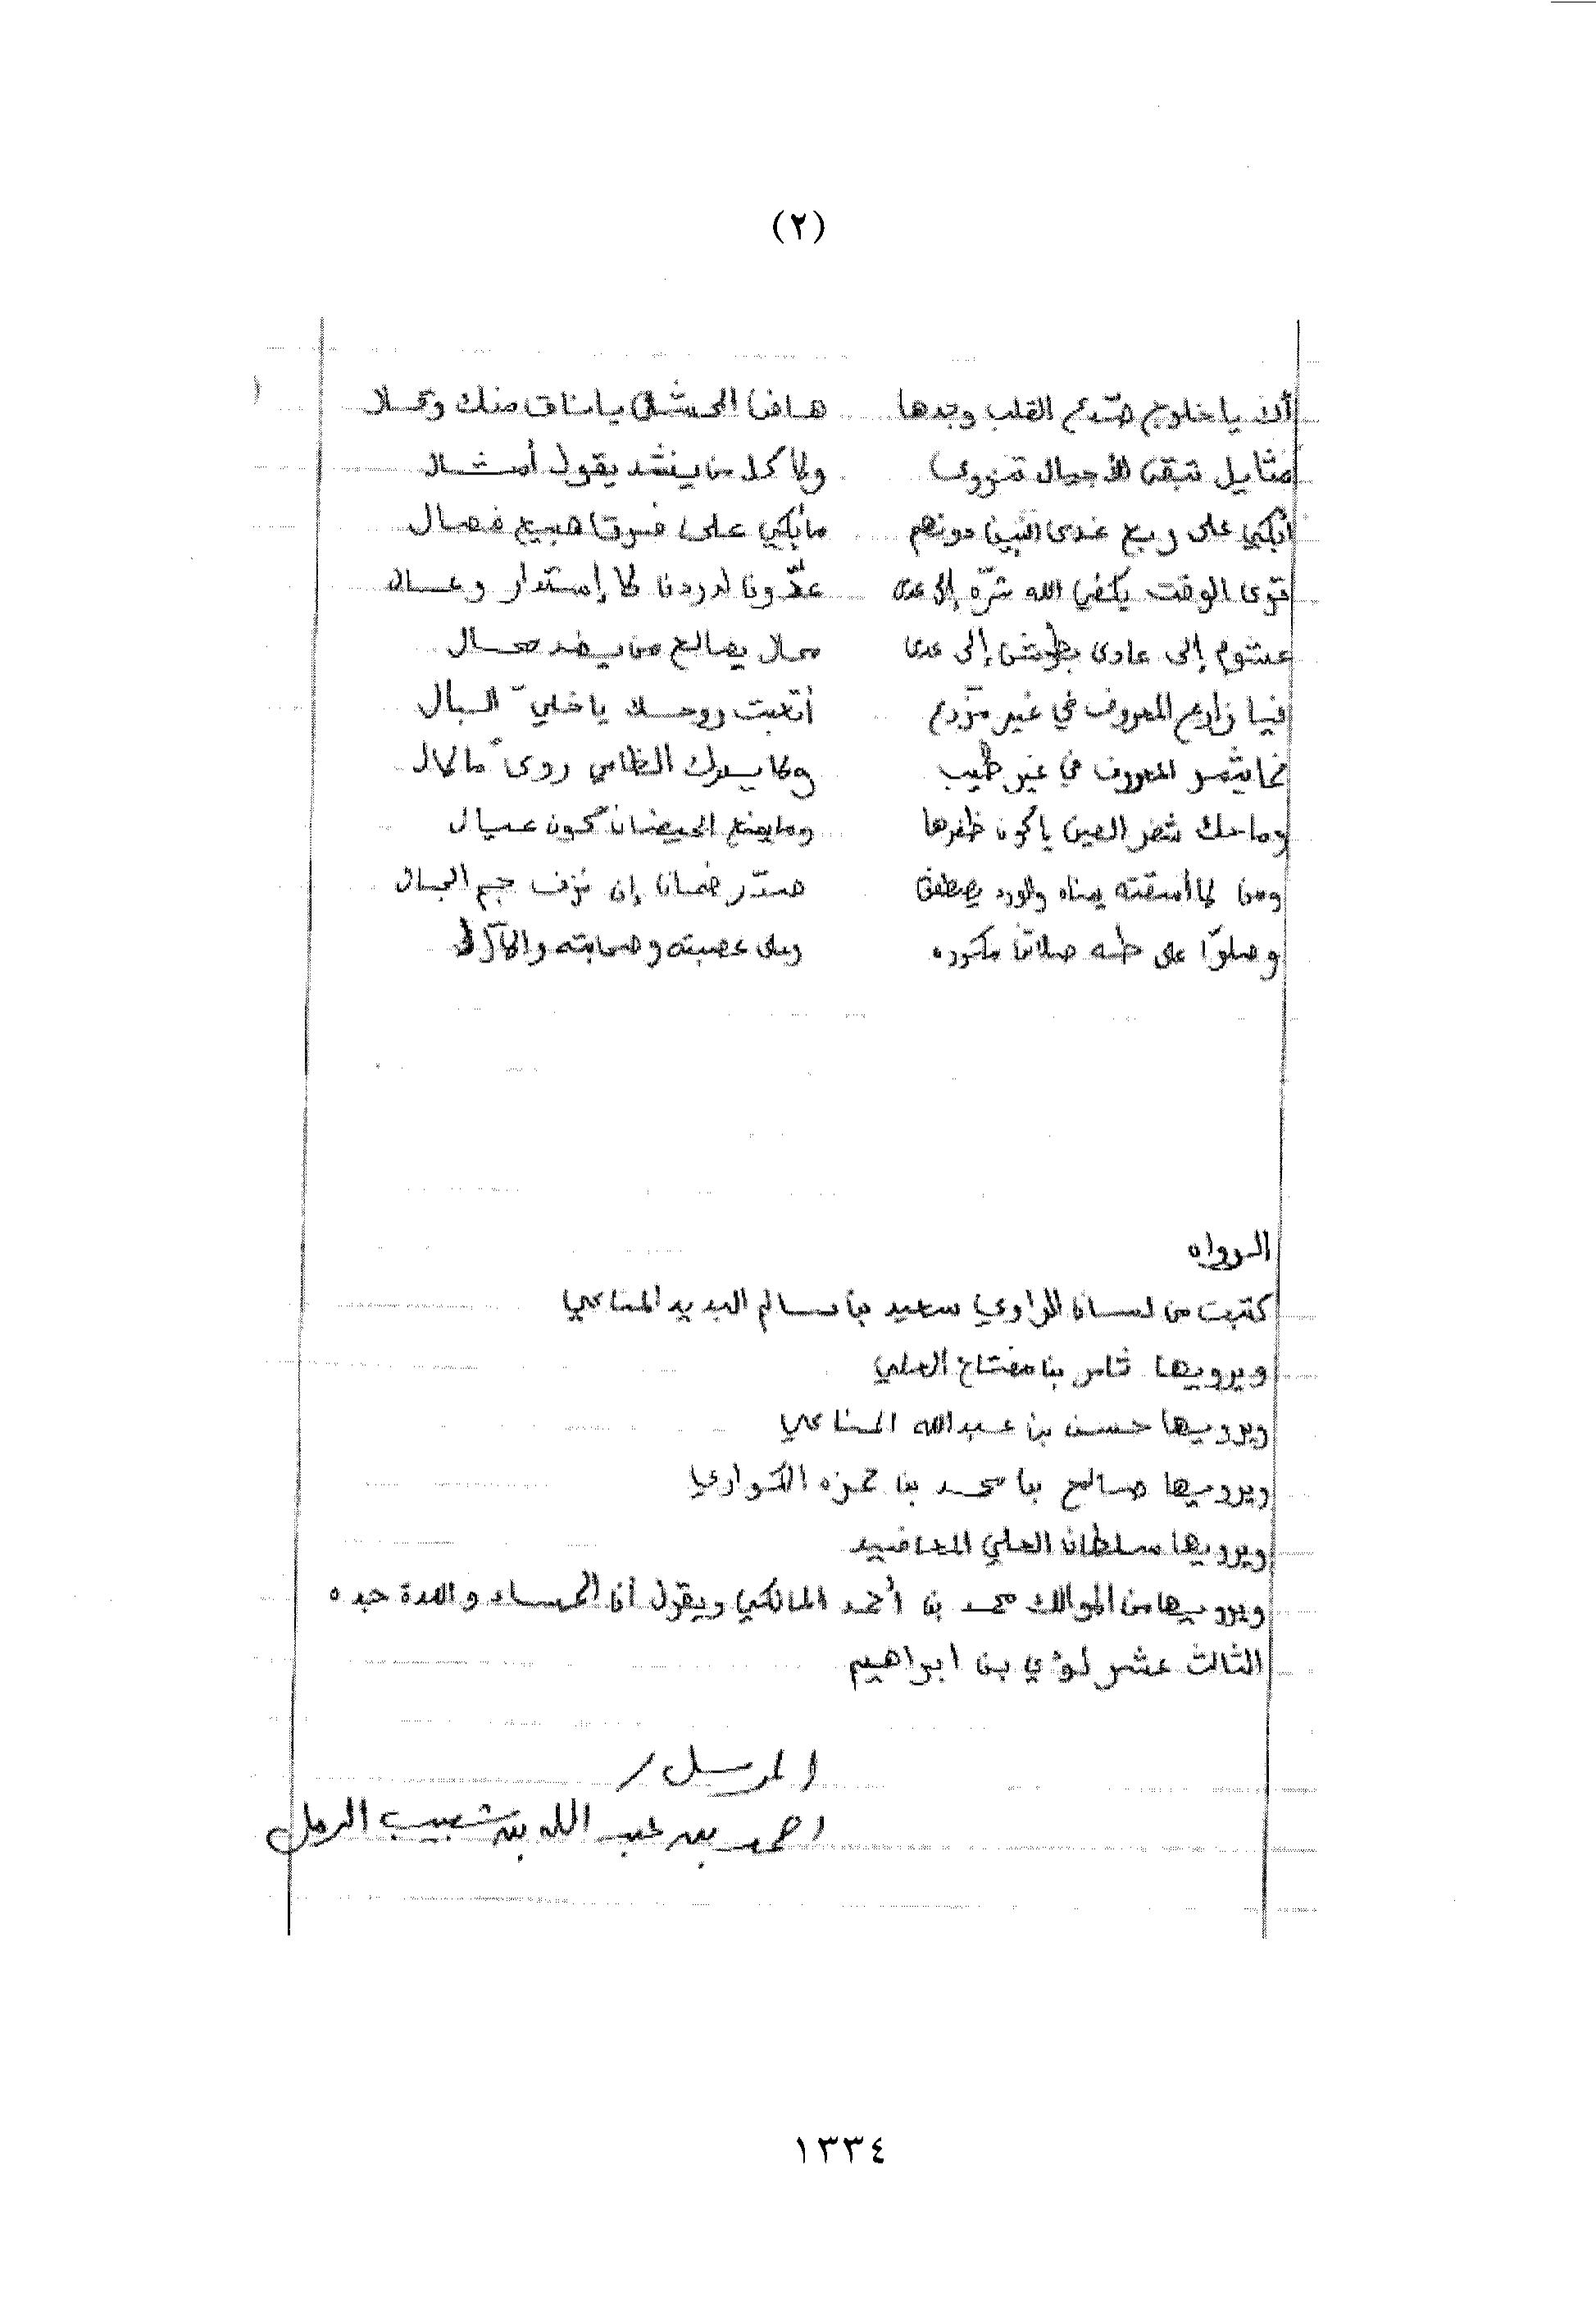 (٢)
ألا يا خلوج صدّع القلب وجدها هافا الحشى يا ناق منك وحال
مثايل تبقى للأجيال تنروى ولا كل من ينشد يقول أمثال
أبكي على ربع غدى البين دونهم مابكي على فرقا هبيع فصال
قوى الوقت يكفي الله شرّه إلى عدى عدّونا لدردنا لا إستدار وعال
عشوم إلى عادى إلى عدى محال يصالح من يضد محال
فيا زارع المعروف في غير مزرع أتعبت روحك يا خليّ البال
فما يثمر المعروف في غير طيب ولا يدرك الظامي روى ما لال
وما حك شفر العين يا كون ظفرها وما ينفع الحيضان كون عيال
ومن لا أسقته يمناه والورد يصطفق صدّر ضمان إن نزف جم الجال
وصلوّا على طه صلاة مكرره وعلى عصبته وصحابته والآل
الرواه
كتبت من لسان الراوي سعيد بن سالم البديد المناعي
ويرويها ثامر بن مفتاح العلي
ويرويها حسن بن عبدالله المناعي
ويرويها صالح بن محمد بن حمزه الكواري
ويرويها سلطان العلي المعاضيد
ويرويها من الموالك محمد بن أحمد المالكي ويقول أن الخنساء والدة جده
الثالث عشر لؤي بن ابراهيم
المرسل /
احمد بن عبد الله بن شبيب الرمل
١٣٣٤